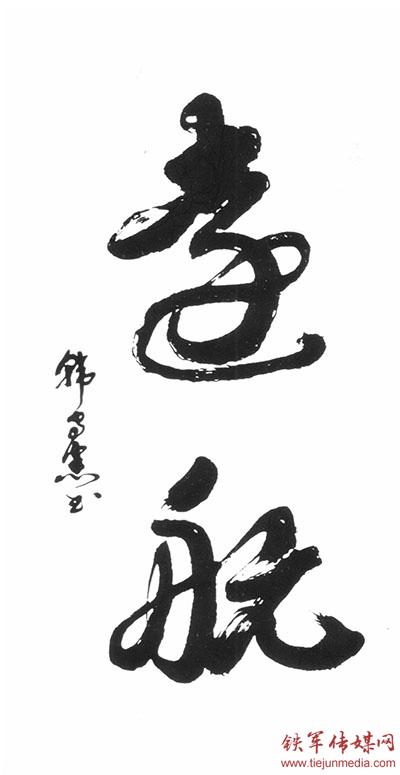 遠航
韩书
铁军传媒网
www.tiejunmedia.com